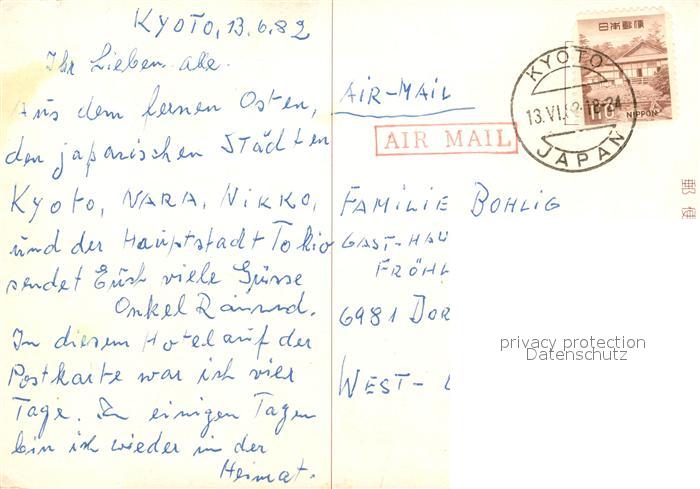 Kyoto, 13.6.82
Ihr Lieben alle.
Aus dem fernen Osten,
den japanischen Städten
Kyoto, NARA, NIKKO,
und der Hauptstadt Tokio
sendet Euch viele Grüsse
Onkel
In diesem Hotel auf der
Postkarte war ich vier
Tage. In einigen Tagen
bin ich wieder in der
Heimat.
AIR-MAIL
AIR MAIL
日本郵便
110
NIPPON
KYOTO
13.VI.82.18-24
JAPAN
FAMILIE BOHLIG
GAST-HAU
FRÖHL
6981 DOR
WEST-
郵便
privacy protection
Datenschutz